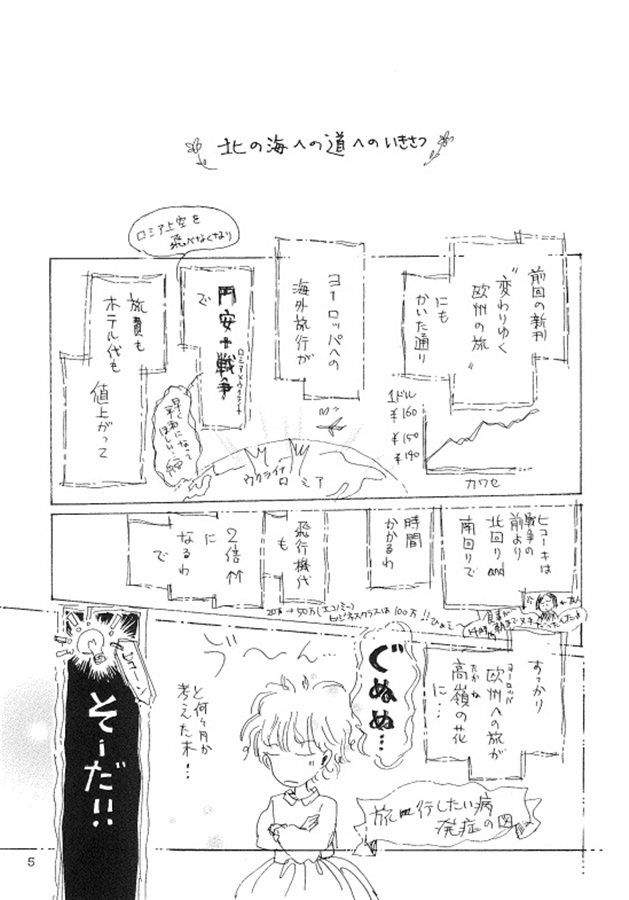 北の海への道へのいきさつ
前回の新刊
"変わりゆく
欧州の旅"
にも
かいた通り
ヨーロッパへの
海外旅行が
ロシア上空を
飛べなくなり
円安+戦争
ロシア×ウクライナ
で
旅費も
ホテル代も
値上がって
早く平和になって
ほしい…
1ドル
¥160
¥150
¥140
カワセ
ウクライナ
ロシア
ヒコーキは
戦争の
前より
北回りand
南回りで
時間
かかるわ
飛行機代
も
2倍
に
なるわ
で
20万→50万(エコノミー)
ビジネスクラスは100万!!ひぇー
友人
すっかり
欧州への旅が
ヨーロッパ
高嶺の花
たかね
に…
ぐぬぬ…
う〜〜ん…
と何ヶ月か
考えた木…!
旅行したい病
発症の図
ピコーン
そーだ!!
5